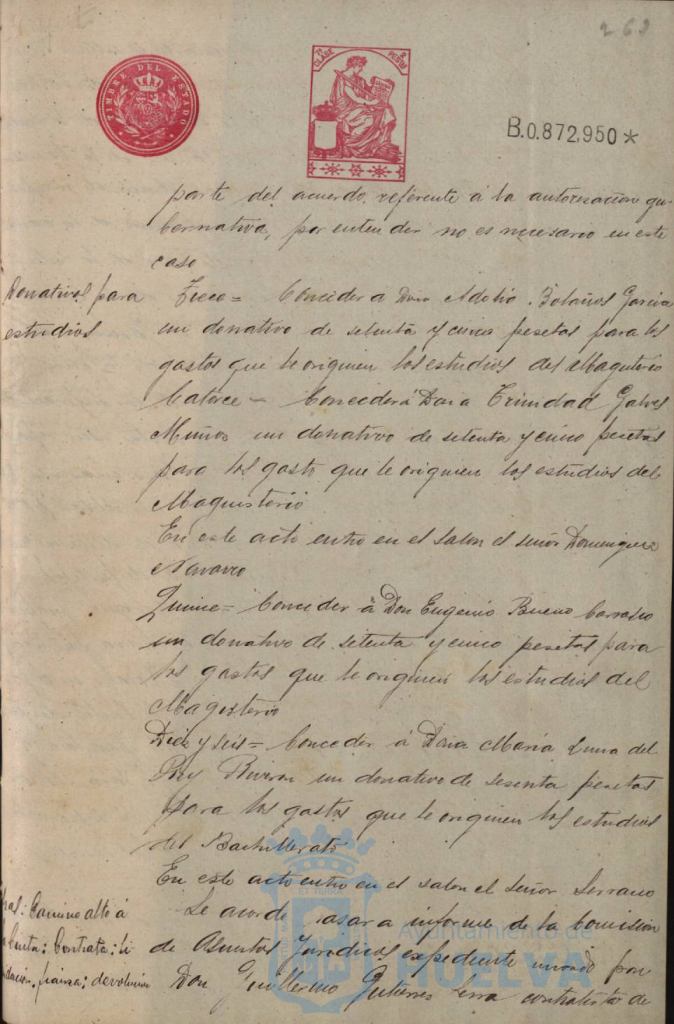 263
TIMBRE DEL ESTADO
CLASE
B.0.872,950*
parte del acuerdo, referente á la autorización gu-
bernativa, por entender no es necesario en este
caso
Donativos para
estudios
Trece= Conceder a Dona Adolia Bolaños Garcia
un donativo de setenta y cinco pesetas para los
gastos que le originen los estudios del Magisterio
Catorce - Conceder á Dona Trinidad Galves
Muños un donativo de setenta y cinco pesetas
para los gasto que le originen los estudios del
Magisterio
En este acto entro en el salon el señor Domingues
Navarro
Quince= Conceder á Don Eugenio Bueno Carrasco
un donativo de setenta y cinco pesetas para
los gastos que le originen los estudios del
Magisterio
Diez y seis= Conceder á Dona María Luisa del
Rey un donativo de sesenta pesetas
para los gastos que le originen los estudios
del Bachillerato
En este acto entro en el salon el Señor Serrano
Camino alto á
Contrata: li
fianza: devolucion
Se acordo pasar a informe de la Comision
de Asuntos Juridicos expediente incoado por
Don Guillermo Gutierres Serra contratista de
Ayuntamiento de
HUELVA